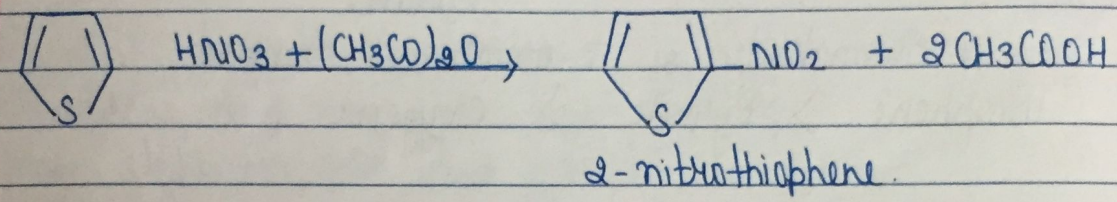 HNO3 + (CH3CO)2O NO2 + 2CH3COOH
S S
2-nitrothiophene.